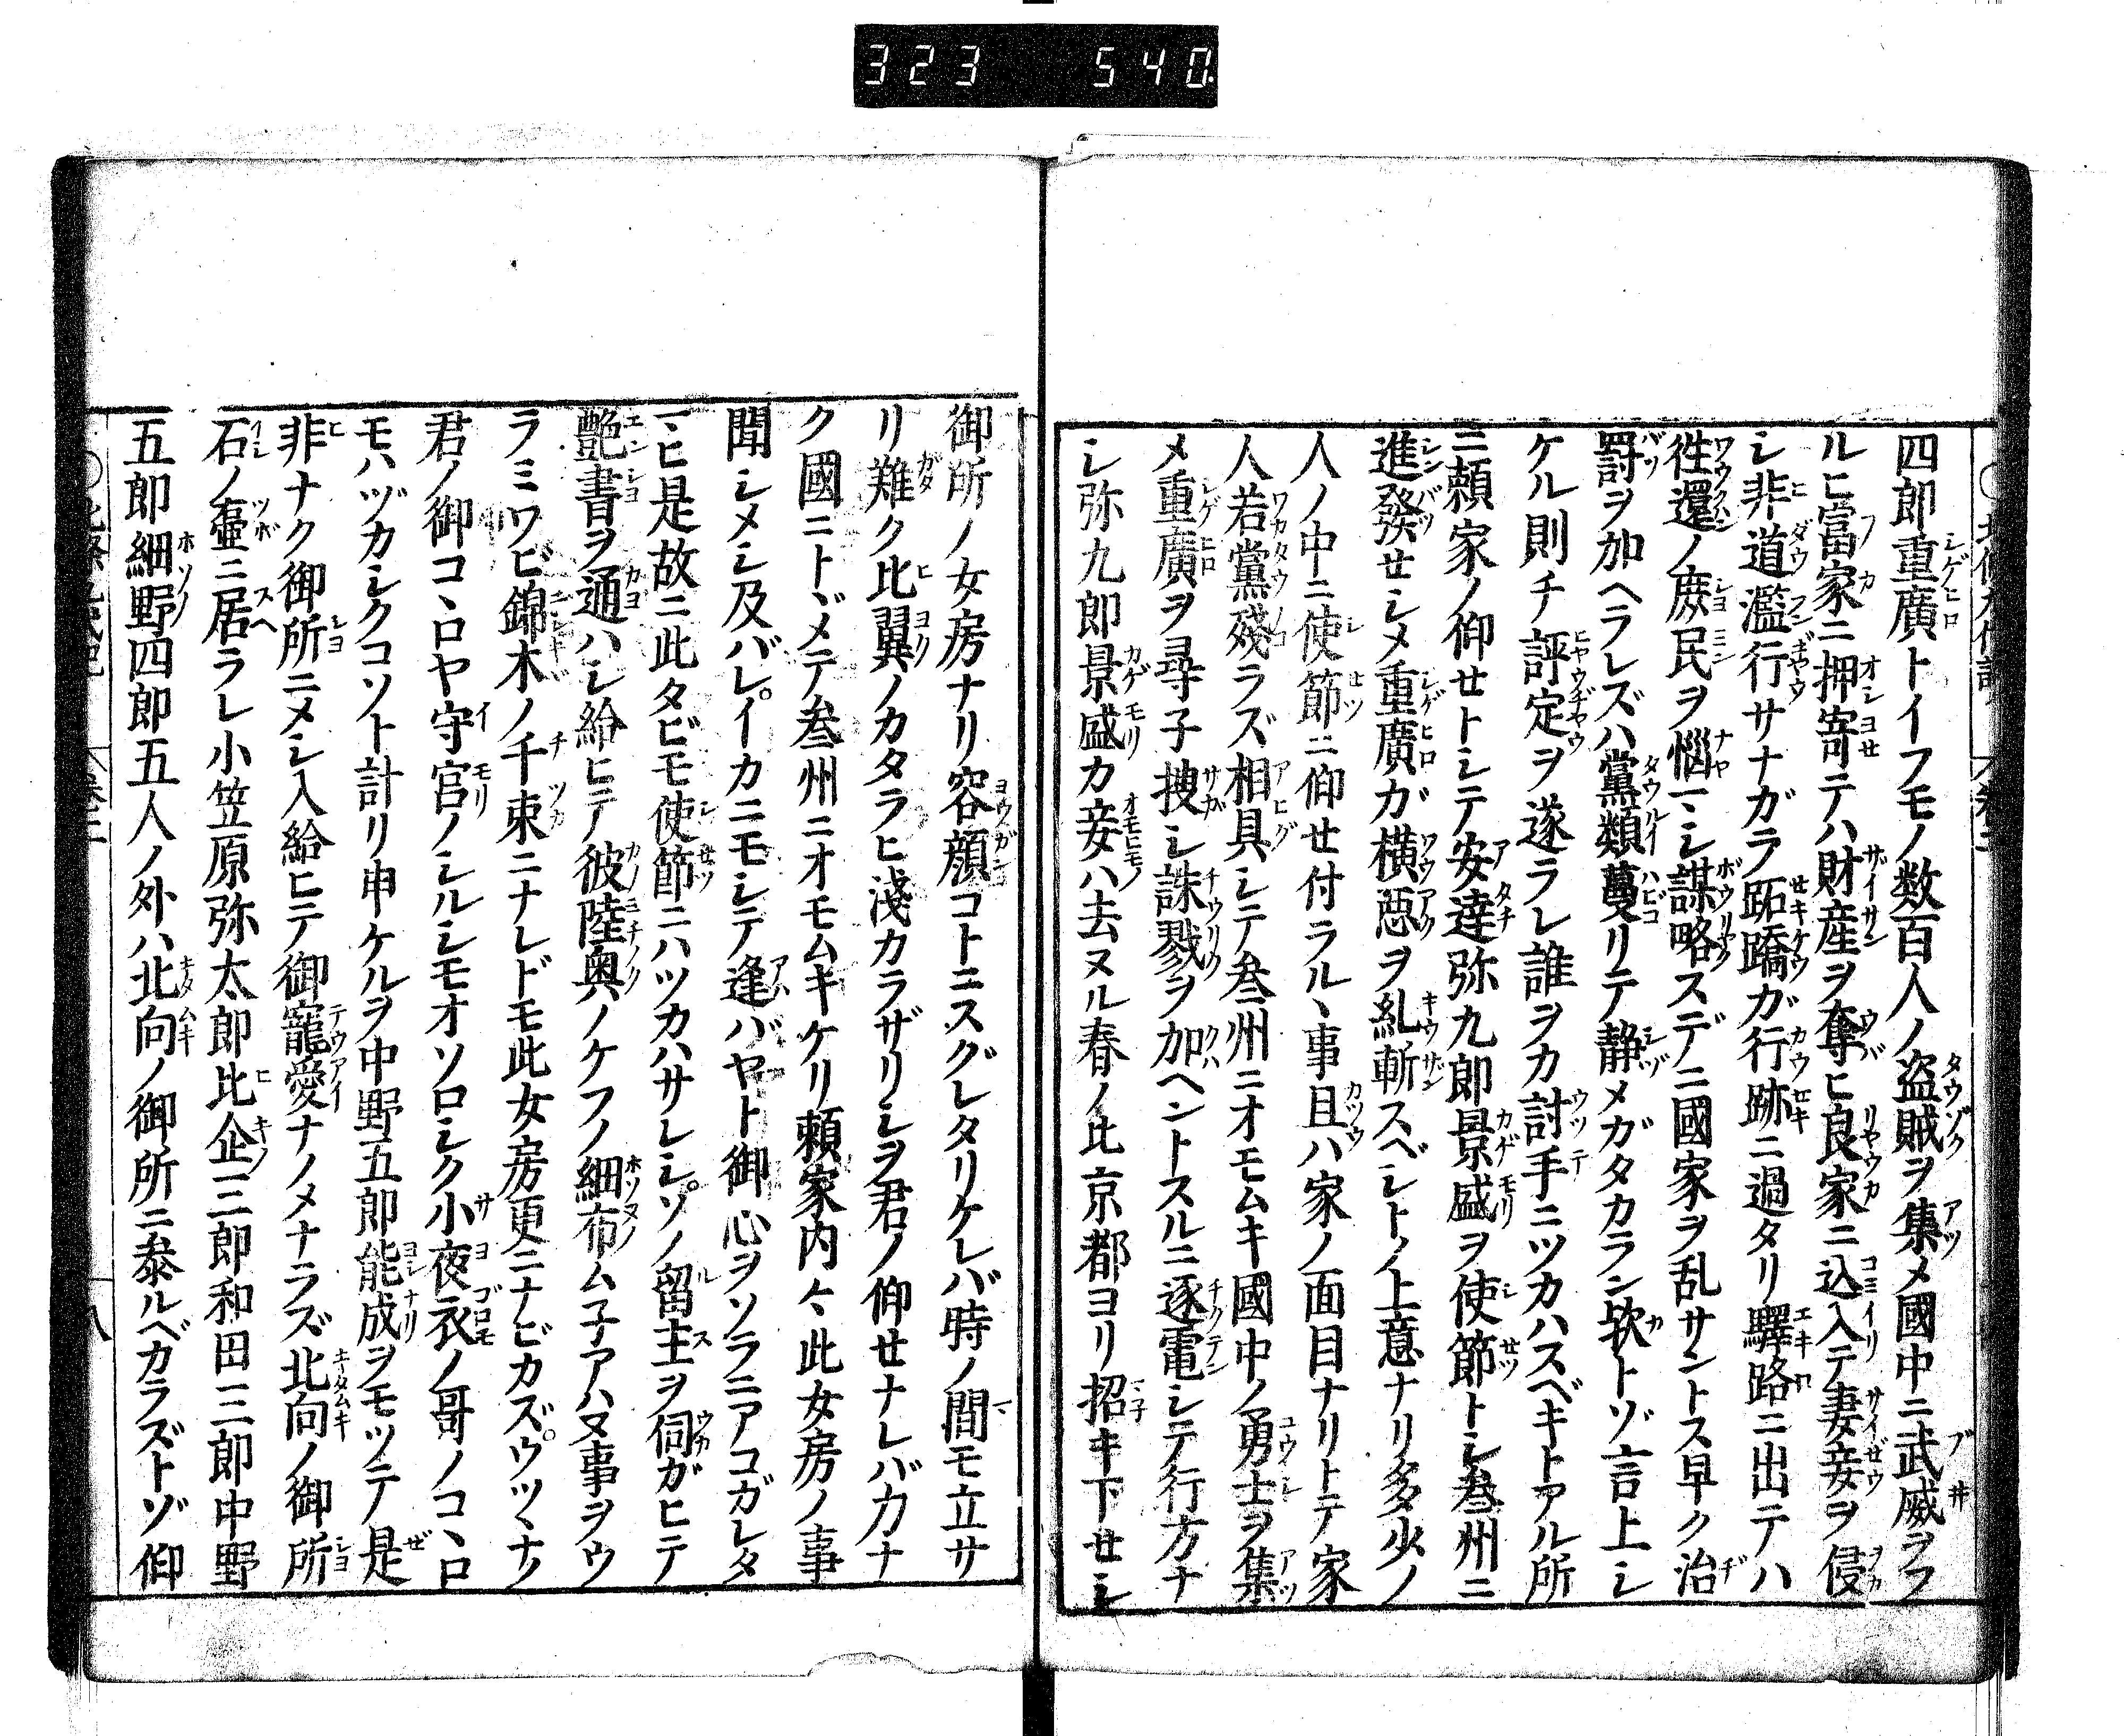 323 540.
四郎重廣トイフモノ数百人ノ盗賊ヲ集メ國中ニ武威ヲフ
ルヒ富家ニ押寄テハ財産ヲ奪ヒ良家ニ込入テ妻妾ヲ侵
シ非道濫行サナガラ跖蹻ガ行跡ニ過タリ驛路ニ出テハ
徃還ノ庶民ヲ惱マシ謀略スデニ國家ヲ乱サントス早ク治
罸ヲ加ヘラレズハ黨類蔓リテ静メガタカラン歟トゾ言上シ
ケル則チ評定ヲ遂ラレ誰ヲカ討手ニツカハスベキトアル所
ニ頼家ノ仰セトシテ安達弥九郎景盛ヲ使節トシ叄州ニ
進發セシメ重廣ガ横惡ヲ糺斬スベシトノ上意ナリ多少ノ
人ノ中ニ使節ニ仰セ付ラルヽ事且ハ家ノ面目ナリトテ家
人若黨殘ラズ相具シテ叄州ニオモムキ國中ノ勇士ヲ集
メ重廣ヲ尋子捜シ誅戮ヲ加ヘントスルニ逐電シテ行方ナ
シ弥九郎景盛カ妾ハ去ヌル春ノ比京都ヨリ招キ下セシ
御所ノ女房ナリ容顔コトニスグレタリケレバ時ノ間モ立サ
リ難ク比翼ノカタラヒ淺カラザリシヲ君ノ仰セナレバ力ナ
ク國ニトヾメテ叄州ニオモムキケリ頼家内々此女房ノ事
聞シメシ及バレイカニモシテ逢バヤト御心ヲソラニアコガレタ
マヒ是故ニ此タビモ使節ニハツカハサレシソノ留主ヲ伺ガヒテ
艶書ヲ通ハシ給ヒテ彼陸奥ノケフノ細布ム子アハヌ事ヲウ
ラミワビ錦木ノ千束ニナレドモ此女房更ニナビカズウツヽナノ
君ノ御コヽロヤ守宮ノシルシモオソロシク小夜衣ノ哥ノコヽロ
モハヅカシクコソト計リ申ケルヲ中野五郎能成ヲモツテ是
非ナク御所ニメシ入給ヒテ御寵愛ナノメナラズ北向ノ御所
石ノ壷ニ居ラレ小笠原弥太郎比企三郎和田三郎中野
五郎細野四郎五人ノ外ハ北向ノ御所ニ叅ルベカラズトゾ仰
八